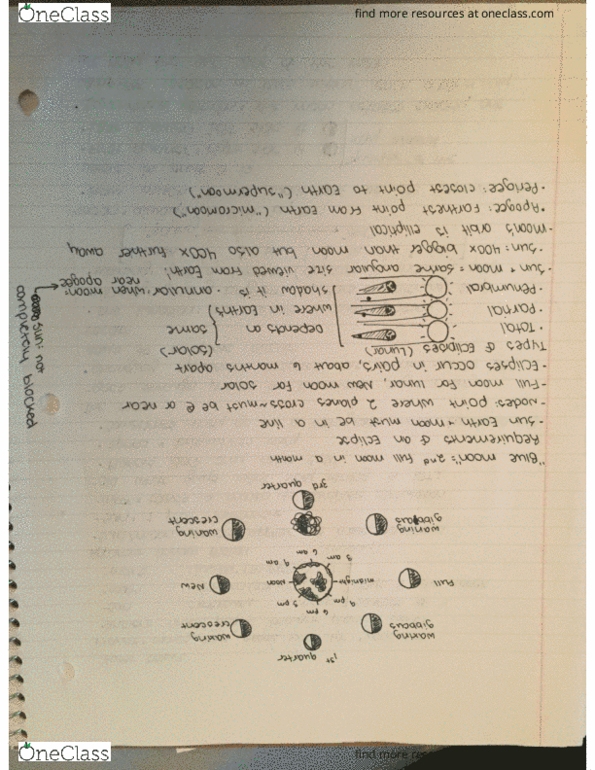 OneClass
find more resources at oneclass.com
1st quarter
waxing gibbous
waxing crescent
6 pm
9 pm
3 pm
Full
midnight
noon
New
3 am
9 am
6 am
waning gibbous
waning crescent
3rd quarter
"Blue moon": 2nd full moon in a month
Requirements of an Eclipse
- Sun Earth + moon must be in a line
- Nodes: point where 2 planes cross ~ must be @ or near
- Full moon for lunar, New moon for solar
- Eclipses occur in pairs, about 6 months apart
Types of Eclipses (Lunar) (solar)
• Total
• Partial
• Penumbral
Depends on where in Earths shadow it is
same
• annular: when moon near apogee
→ sun: not completely blocked
- Sun + moon: same angular size viewed from Earth!
- Sun: 400x bigger than moon but also 400x further away
- moon's orbit is elliptical
• Apogee: Farthest point from Earth ("micromoon")
• Perigee: closest point to Earth ("supermoon")
OneClass
find more re